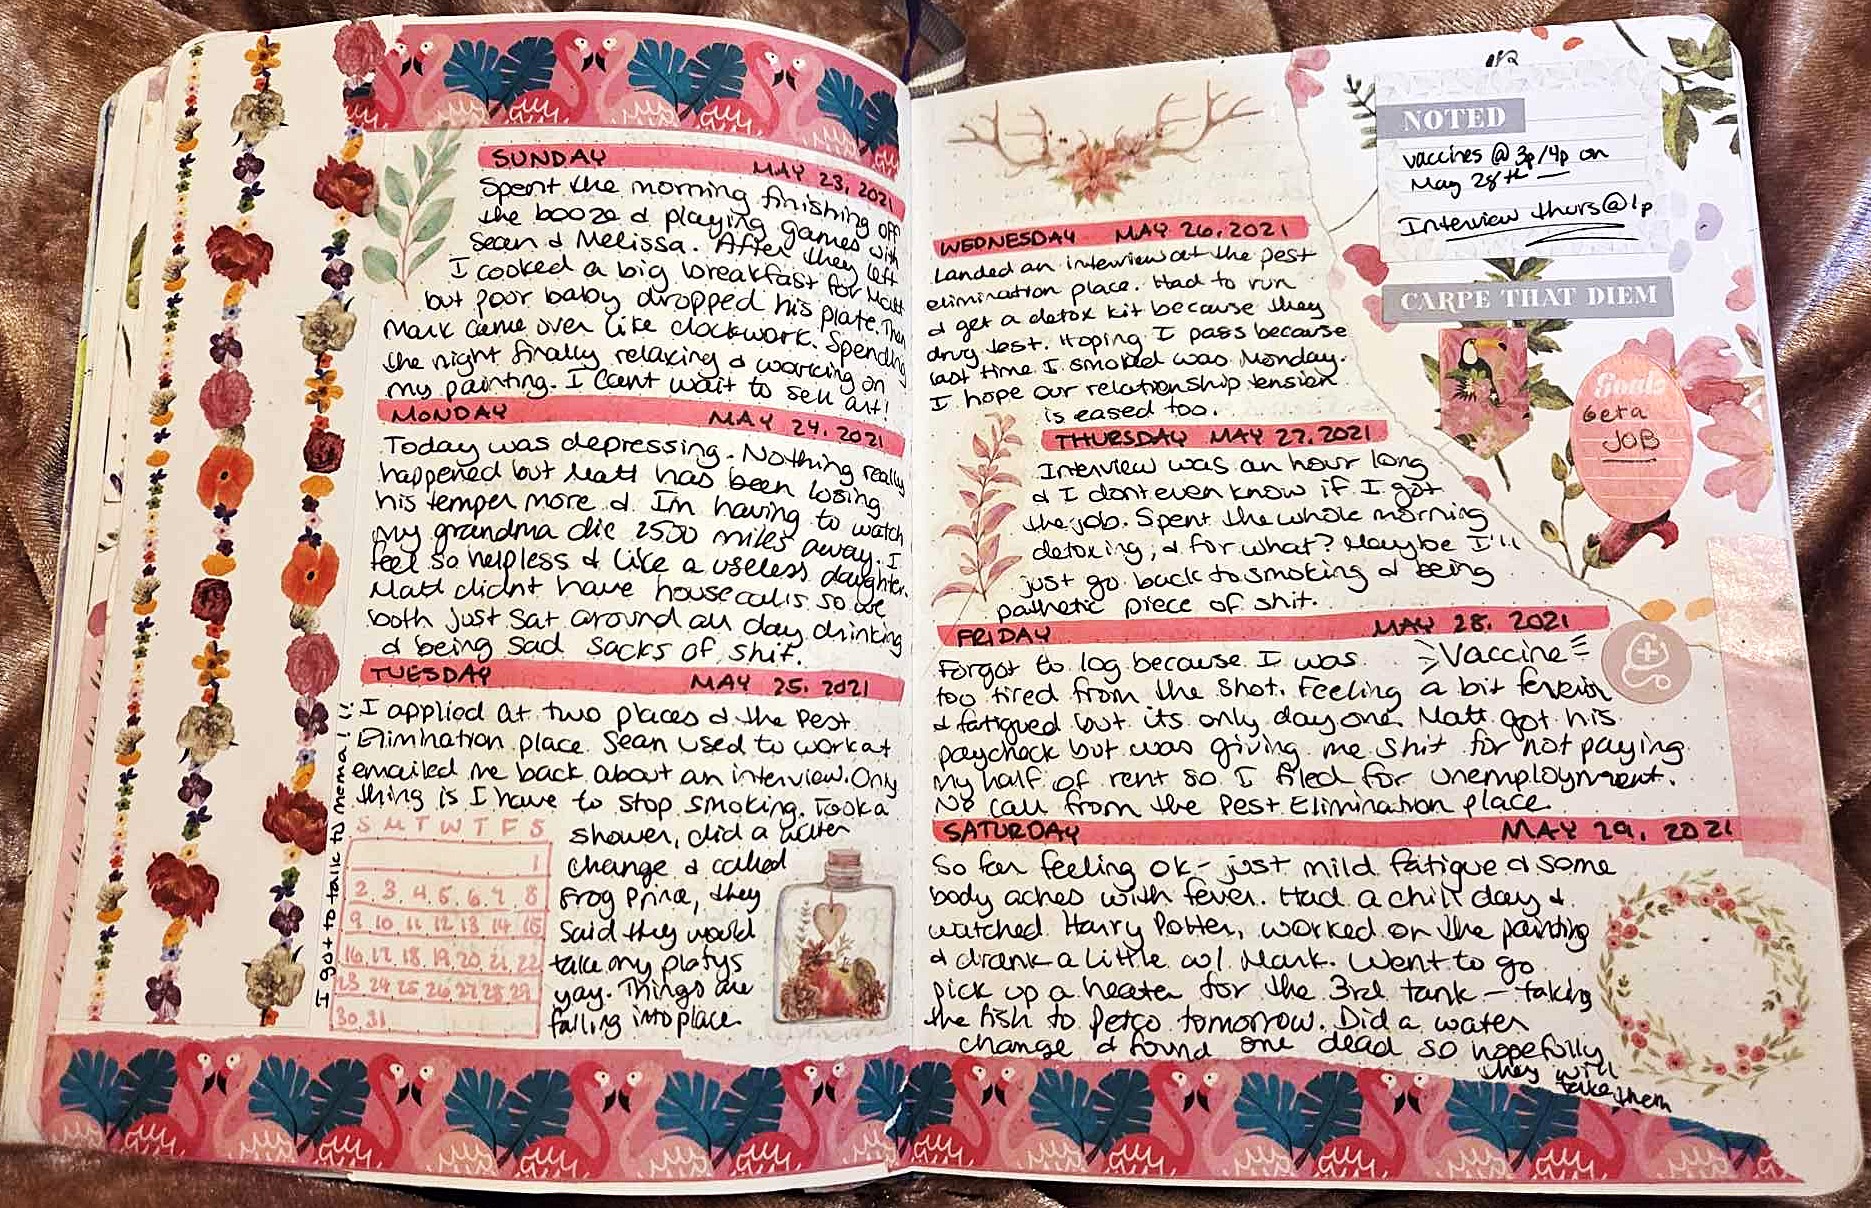 SUNDAY MAY 23, 2021
Spent the morning finishing off
the booze & playing games with
Sean & Melissa. After they left
I cooked a big breakfast for Matt
but poor baby dropped his plate. Then
Mark came over like clockwork. Spending
the night finally relaxing & working on
my painting. I cant wait to sell art!
MONDAY MAY 24, 2021
Today was depressing. Nothing really
happened but Matt has been losing
his temper more & I'm having to watch
my grandma die 2500 miles away. I
feel so helpless & like a useless daughter.
Matt didnt have housecalls so we
both just sat around all day drinking
& being sad sacks of shit.
TUESDAY MAY 25, 2021
I applied at two places & the Pest
Elimination place Sean used to work at
emailed me back about an interview. Only
thing is I have to stop smoking. Took a
shower, did a water
change & called
Frog Prince, they
said they would
take my platys
yay. Things are
falling into place.
I got to talk to mema!!
S M T W T F S
1
2 3 4 5 6 7 8
9 10 11 12 13 14 15
16 17 18 19 20 21 22
23 24 25 26 27 28 29
30 31
NOTED
vaccines @ 3p/4p on
May 28th —
Interview thurs@1p
CARPE THAT DIEM
Goals
Get a
JOB
WEDNESDAY MAY 26, 2021
Landed an interview at the pest
elimination place. Had to run
& get a detox kit because they
drug test. Hoping I pass because
last time I smoked was Monday.
I hope our relationship tension
is eased too.
THURSDAY MAY 27, 2021
Interview was an hour long
& I dont even know if I got
the job. Spent the whole morning
detoxing, & for what? Maybe I'll
just go back to smoking & being
pathetic piece of shit.
FRIDAY MAY 28, 2021
Vaccine
Forgot to log because I was
too tired from the shot. Feeling a bit feverish
& fatigued but its only day one. Matt got his
paycheck but was giving me shit for not paying
my half of rent so I filed for unemployment.
No call from the Pest Elimination place
SATURDAY MAY 29, 2021
So far feeling ok - just mild fatigue & some
body aches with fever. Had a chill day &
watched Harry Potter, worked on the painting
& drank a little w/ Mark. Went to go
pick up a heater for the 3rd tank - taking
the fish to Petco tomorrow. Did a water
change & found one dead so hopefully
they will
take them